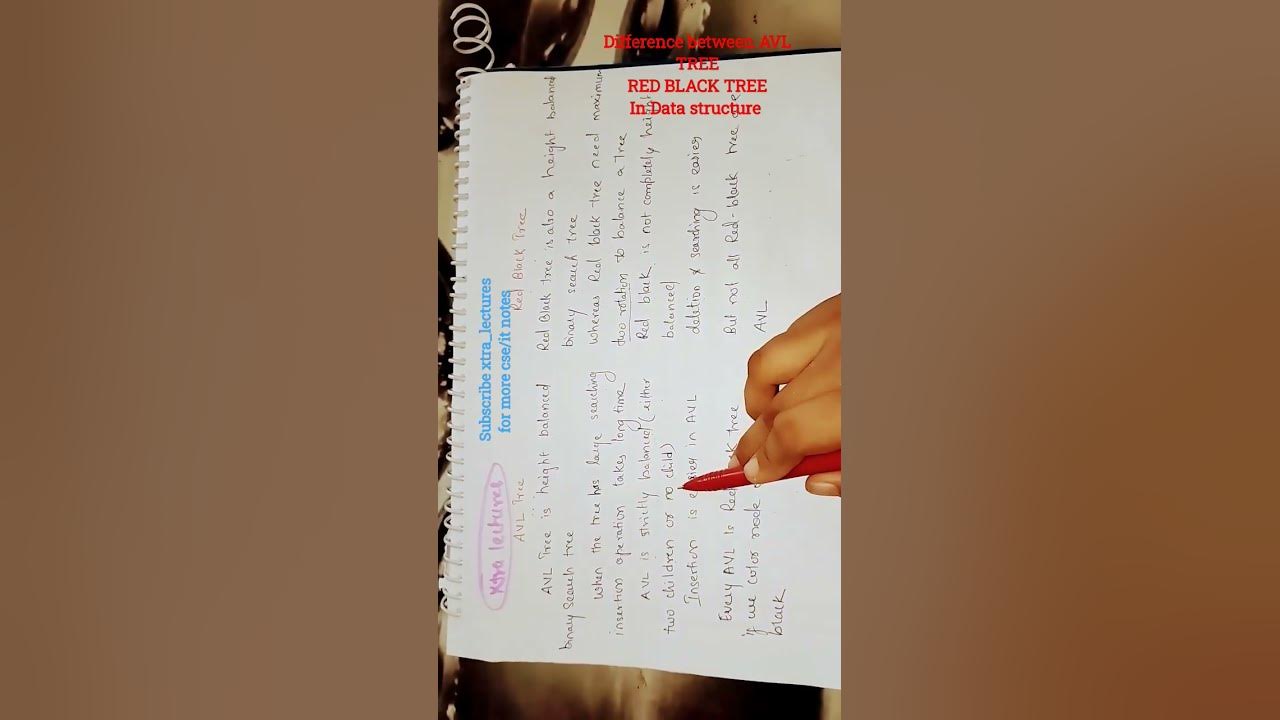 Difference between AVL
TREE
RED BLACK TREE
In Data structure
Subscribe xtra_lectures
for more cse/it notes
xtra lectures
AVL Tree
AVL Tree is height balanced
binary Search tree
When the tree has large searching
insertion operation takes long time
AVL is strictly balanced (either
two children or no child)
Insertion is easier in AVL
Every AVL is Red tree
if we color node
black
Red Black Tree
Red Black tree is also a height balanced
binary search tree
whereas Red black tree need maximum
two rotation to balance a tree
Red black is not completely height
balanced
deletion & searching is easier
But not all Red-black tree are
AVL